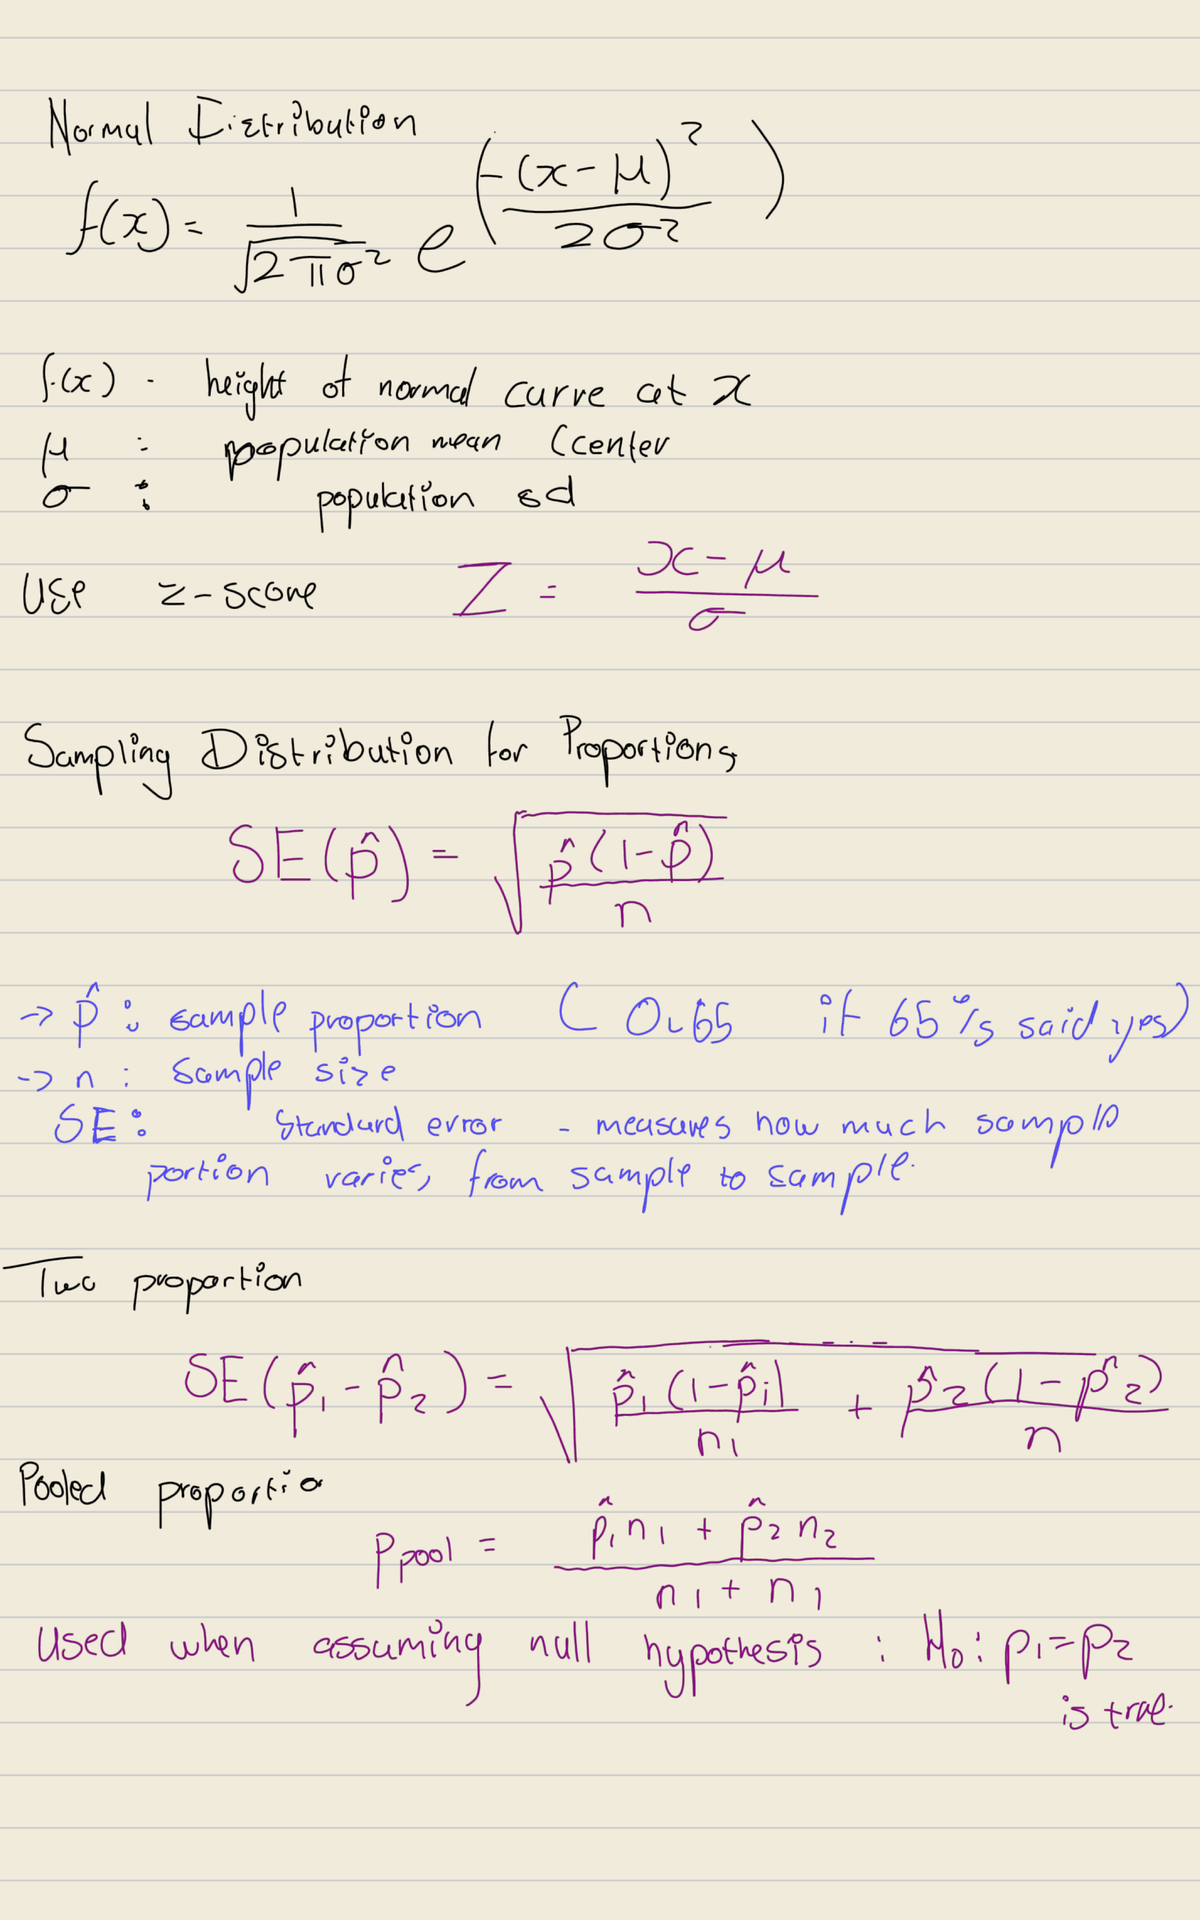 Normal Distribution
f(x) = 1/√(2πσ²) e^(-(x-μ)²/2σ²)
f(x) - height of normal curve at x
μ : population mean (center
σ : population sd
Use z-score Z = (x-μ)/σ
Sampling Distribution for Proportions
SE(p̂) = √(p̂(1-p̂)/n)
→ p̂ : sample proportion ( 0.65 if 65% said yes)
→ n : sample size
SE : Standard error - measures how much sample
portion varies, from sample to sample.
Two proportion
SE(p̂₁-p̂₂) = √(p̂₁(1-p̂₁)/n₁ + p̂₂(1-p̂₂)/n)
Pooled proportio
P pool = (p̂₁n₁ + p̂₂n₂)/(n₁+n₁)
Used when assuming null hypothesis : H₀: p₁=p₂
is true.